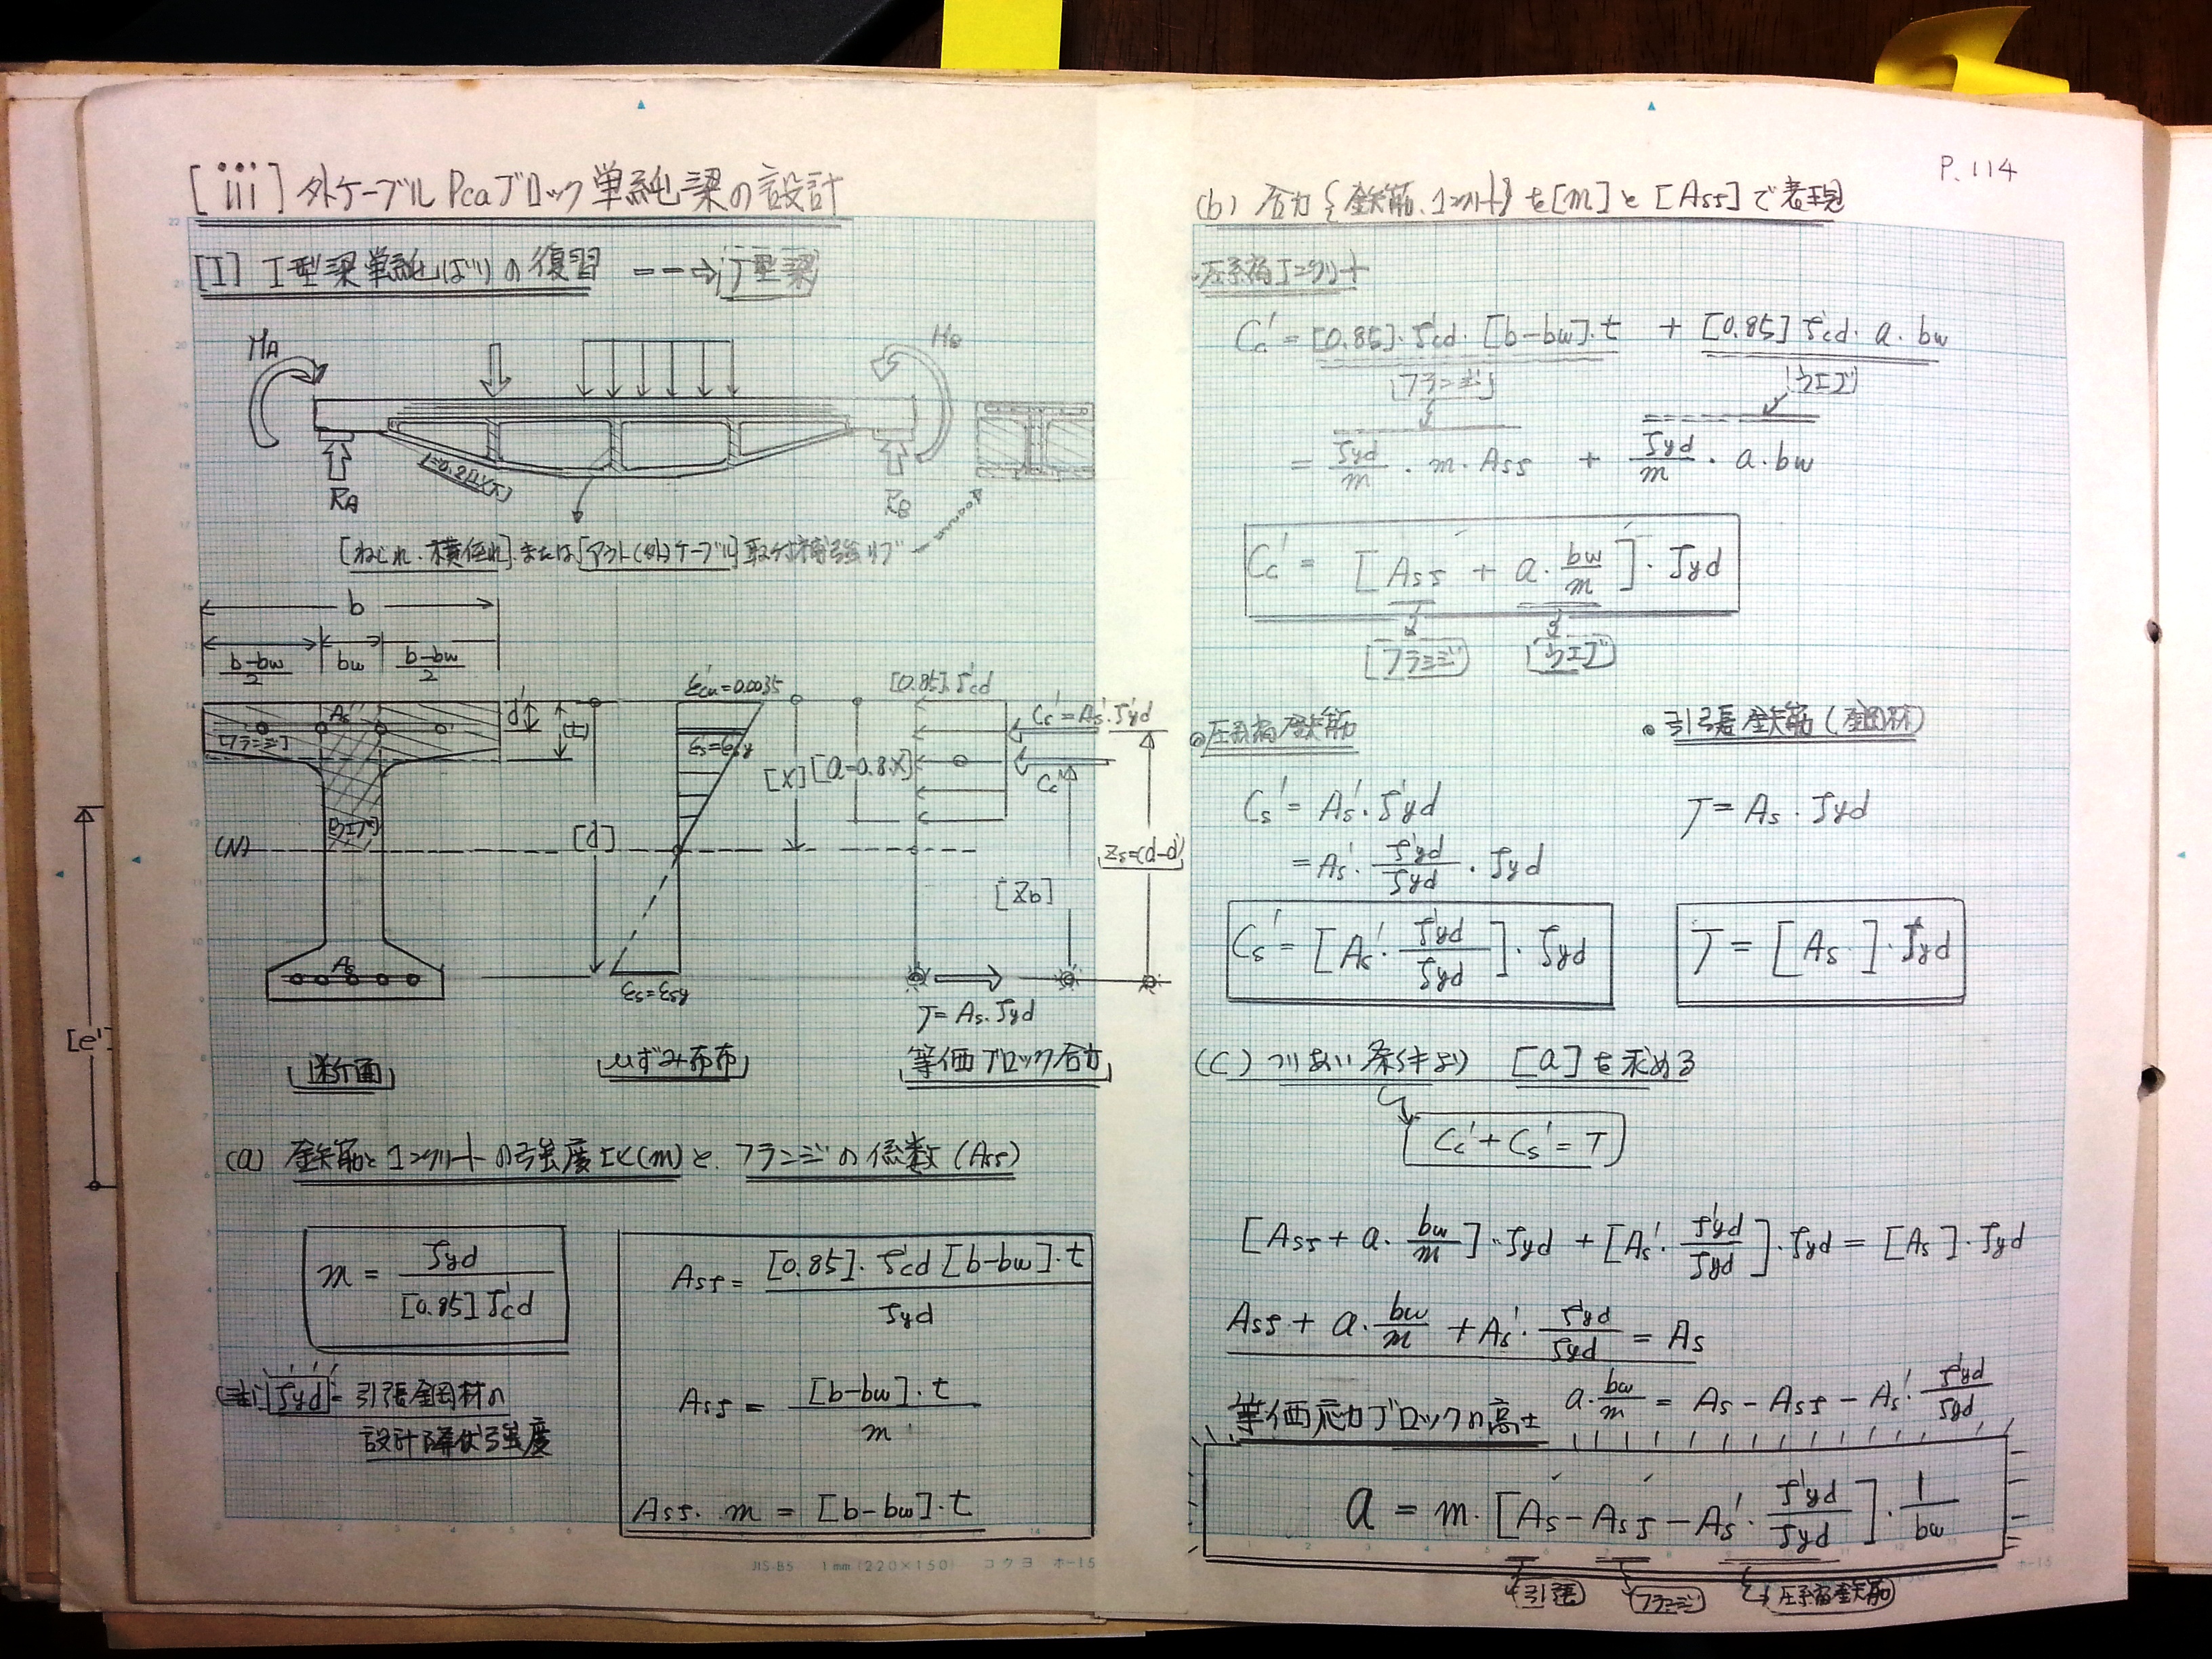 [iii] 外ケーブル Pcaブロック単純梁の設計
[I] I型梁単純ばりの復習 --→ T型梁
MA
MB
RA
RB
[ねじれ・横倒れ]または[アウト(外)ケーブル]取付補強リブ
b
b-bw/2 bw b-bw/2
As'
[フランジ]
d'
[t]
[ウエブ]
(N)
[d]
As
ε'cu=0.0035
ε's=εsy
εs=εsy
[X] [a=0.8X]
[0.85]・f'cd
Cs'=As'・f'yd
Cc'
Zs=(d-d')
[Zb]
T=As・fyd
[e']
断面
ひずみ分布
等価ブロック合力
(a) 鉄筋とコンクリートの強度比(m)と、フランジの係数(Asf)
m = fyd / [0.85]f'cd
(注)[fyd]=引張鋼材の
設計降伏強度
Asf = [0.85]・f'cd[b-bw]・t / fyd
Asf = [b-bw]・t / m
Asf・m = [b-bw]・t
P.114
(b) 合力{鉄筋、コンクリート}を[m]と[Asf]で表現
・圧縮コンクリート
Cc' = [0.85]・f'cd・[b-bw]・t + [0.85]f'cd・a・bw
[フランジ]
[ウエブ]
= fyd/m・m・Asf + fyd/m・a・bw
Cc' = [Asf + a・bw/m]・fyd
[フランジ] [ウエブ]
◎圧縮鉄筋
・引張鉄筋(鋼材)
Cs' = As'・f'yd
= As'・f'yd/fyd・fyd
Cs' = [As'・f'yd/fyd]・fyd
T = As・fyd
T = [As]・fyd
(C) つりあい条件より [a]を求める
Cc'+Cs'=T
[Asf + a・bw/m]・fyd + [As'・f'yd/fyd]・fyd = [As]・fyd
Asf + a・bw/m + As'・f'yd/fyd = As
a・bw/m = As - Asf - As'・f'yd/fyd
等価応力ブロックの高さ
a = m・[As - Asf - As'・f'yd/fyd]・1/bw
引張 フランジ 圧縮鉄筋
JIS-B5 1mm(220×150) コクヨ ホ-15
ホ-15